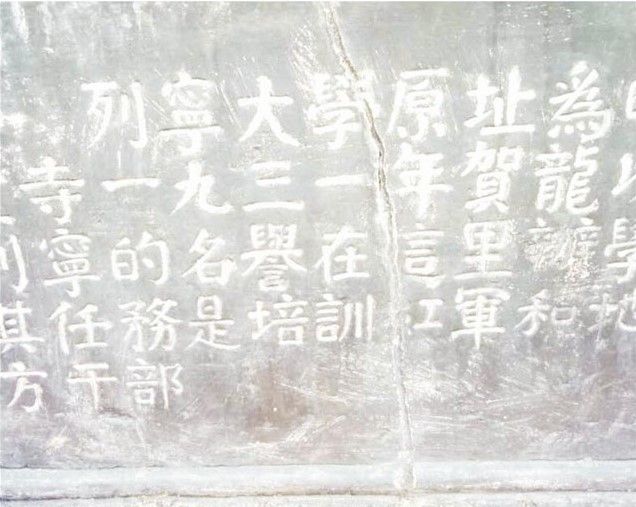 列寧大學原址為
寺一九三一年賀龍以
列寧的名譽在這里辦學
其任務是培訓紅軍和地
方干部